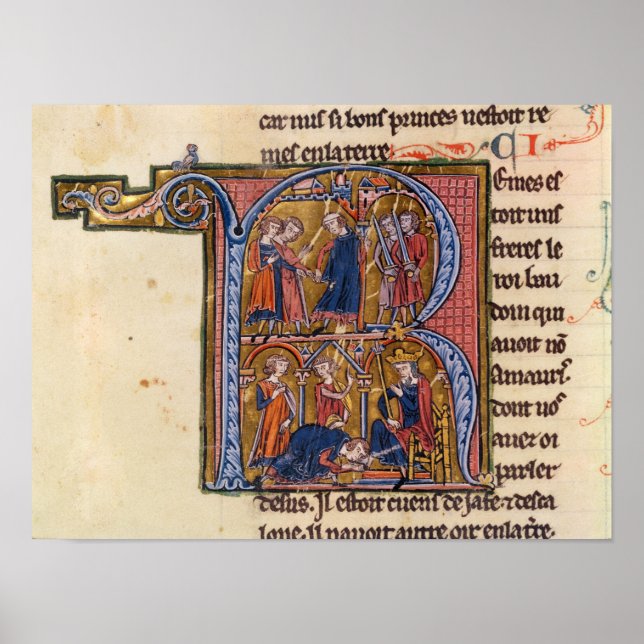 car nus si bons princes nestoit re
mes enlaterre. CI
REmes es
toit uns
freres le
roi bau
doin qui
auoit nō
Amaurī.
dont uoꝯ
auez oi
parler
desus. Il estoit cuens de Jafe ⁊ desca
lone. Il nauoit autre oir enlat̄re.